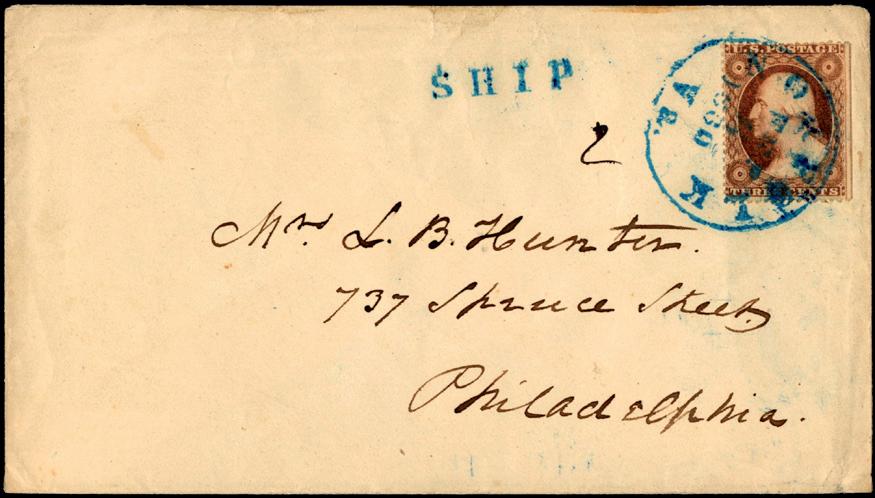 SHIP
U.S. POSTAGE
THREE CENTS
NORFOLK VA
2
Mrs L. B. Hunter.
737 Spruce Street
Philadelphia.